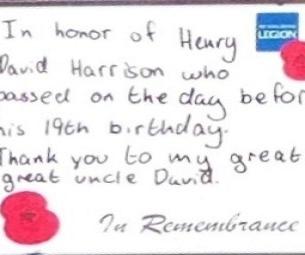 In honor of Henry
David Harrison who
passed on the day befor
his 19th birthday.
Thank you to my great
great uncle David.
LEGION
In Remembrance